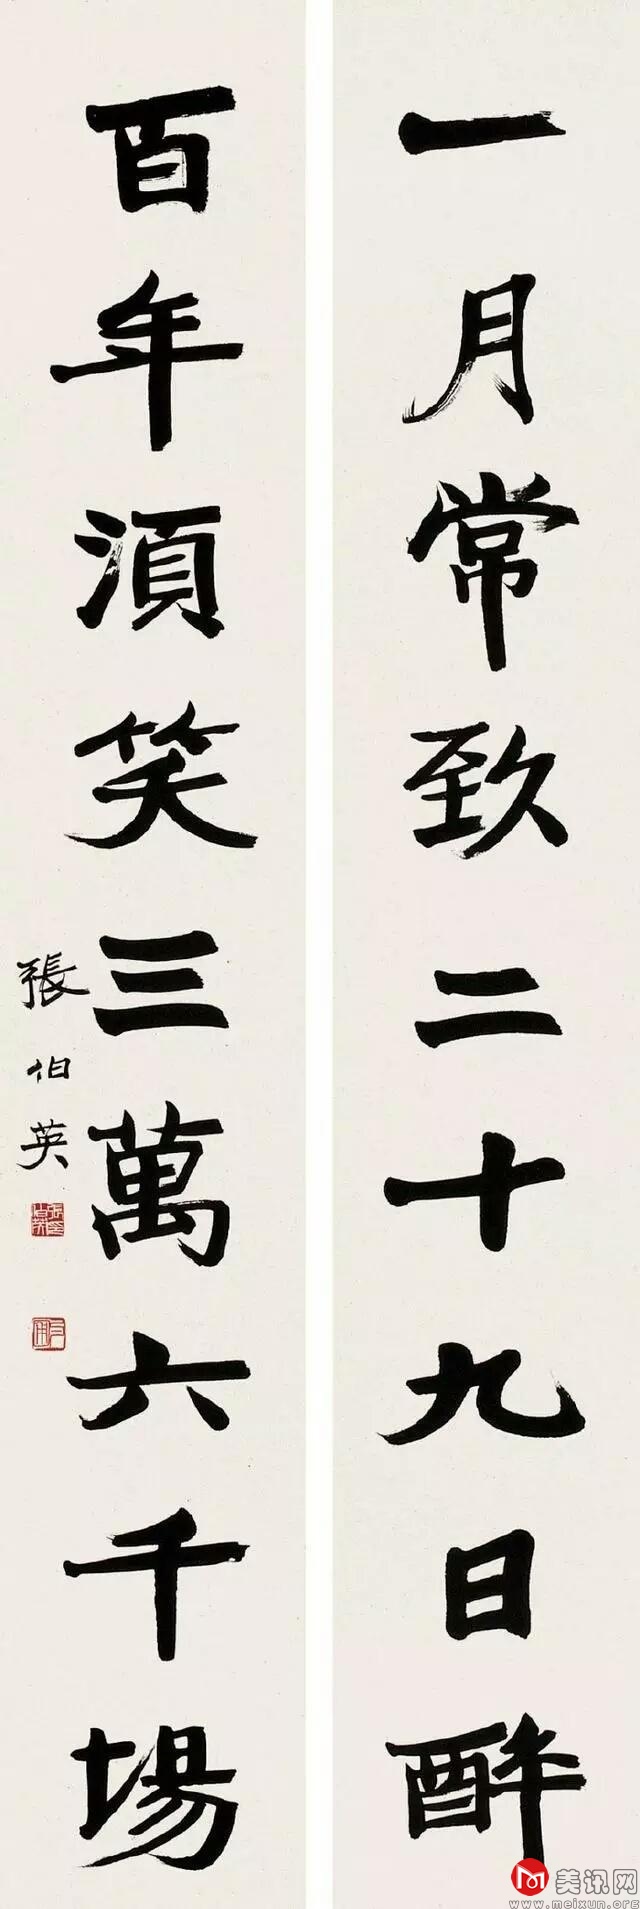 一月常致二十九日醉
百年須笑三萬六千場
張伯英
美讯网
www.meixun.org